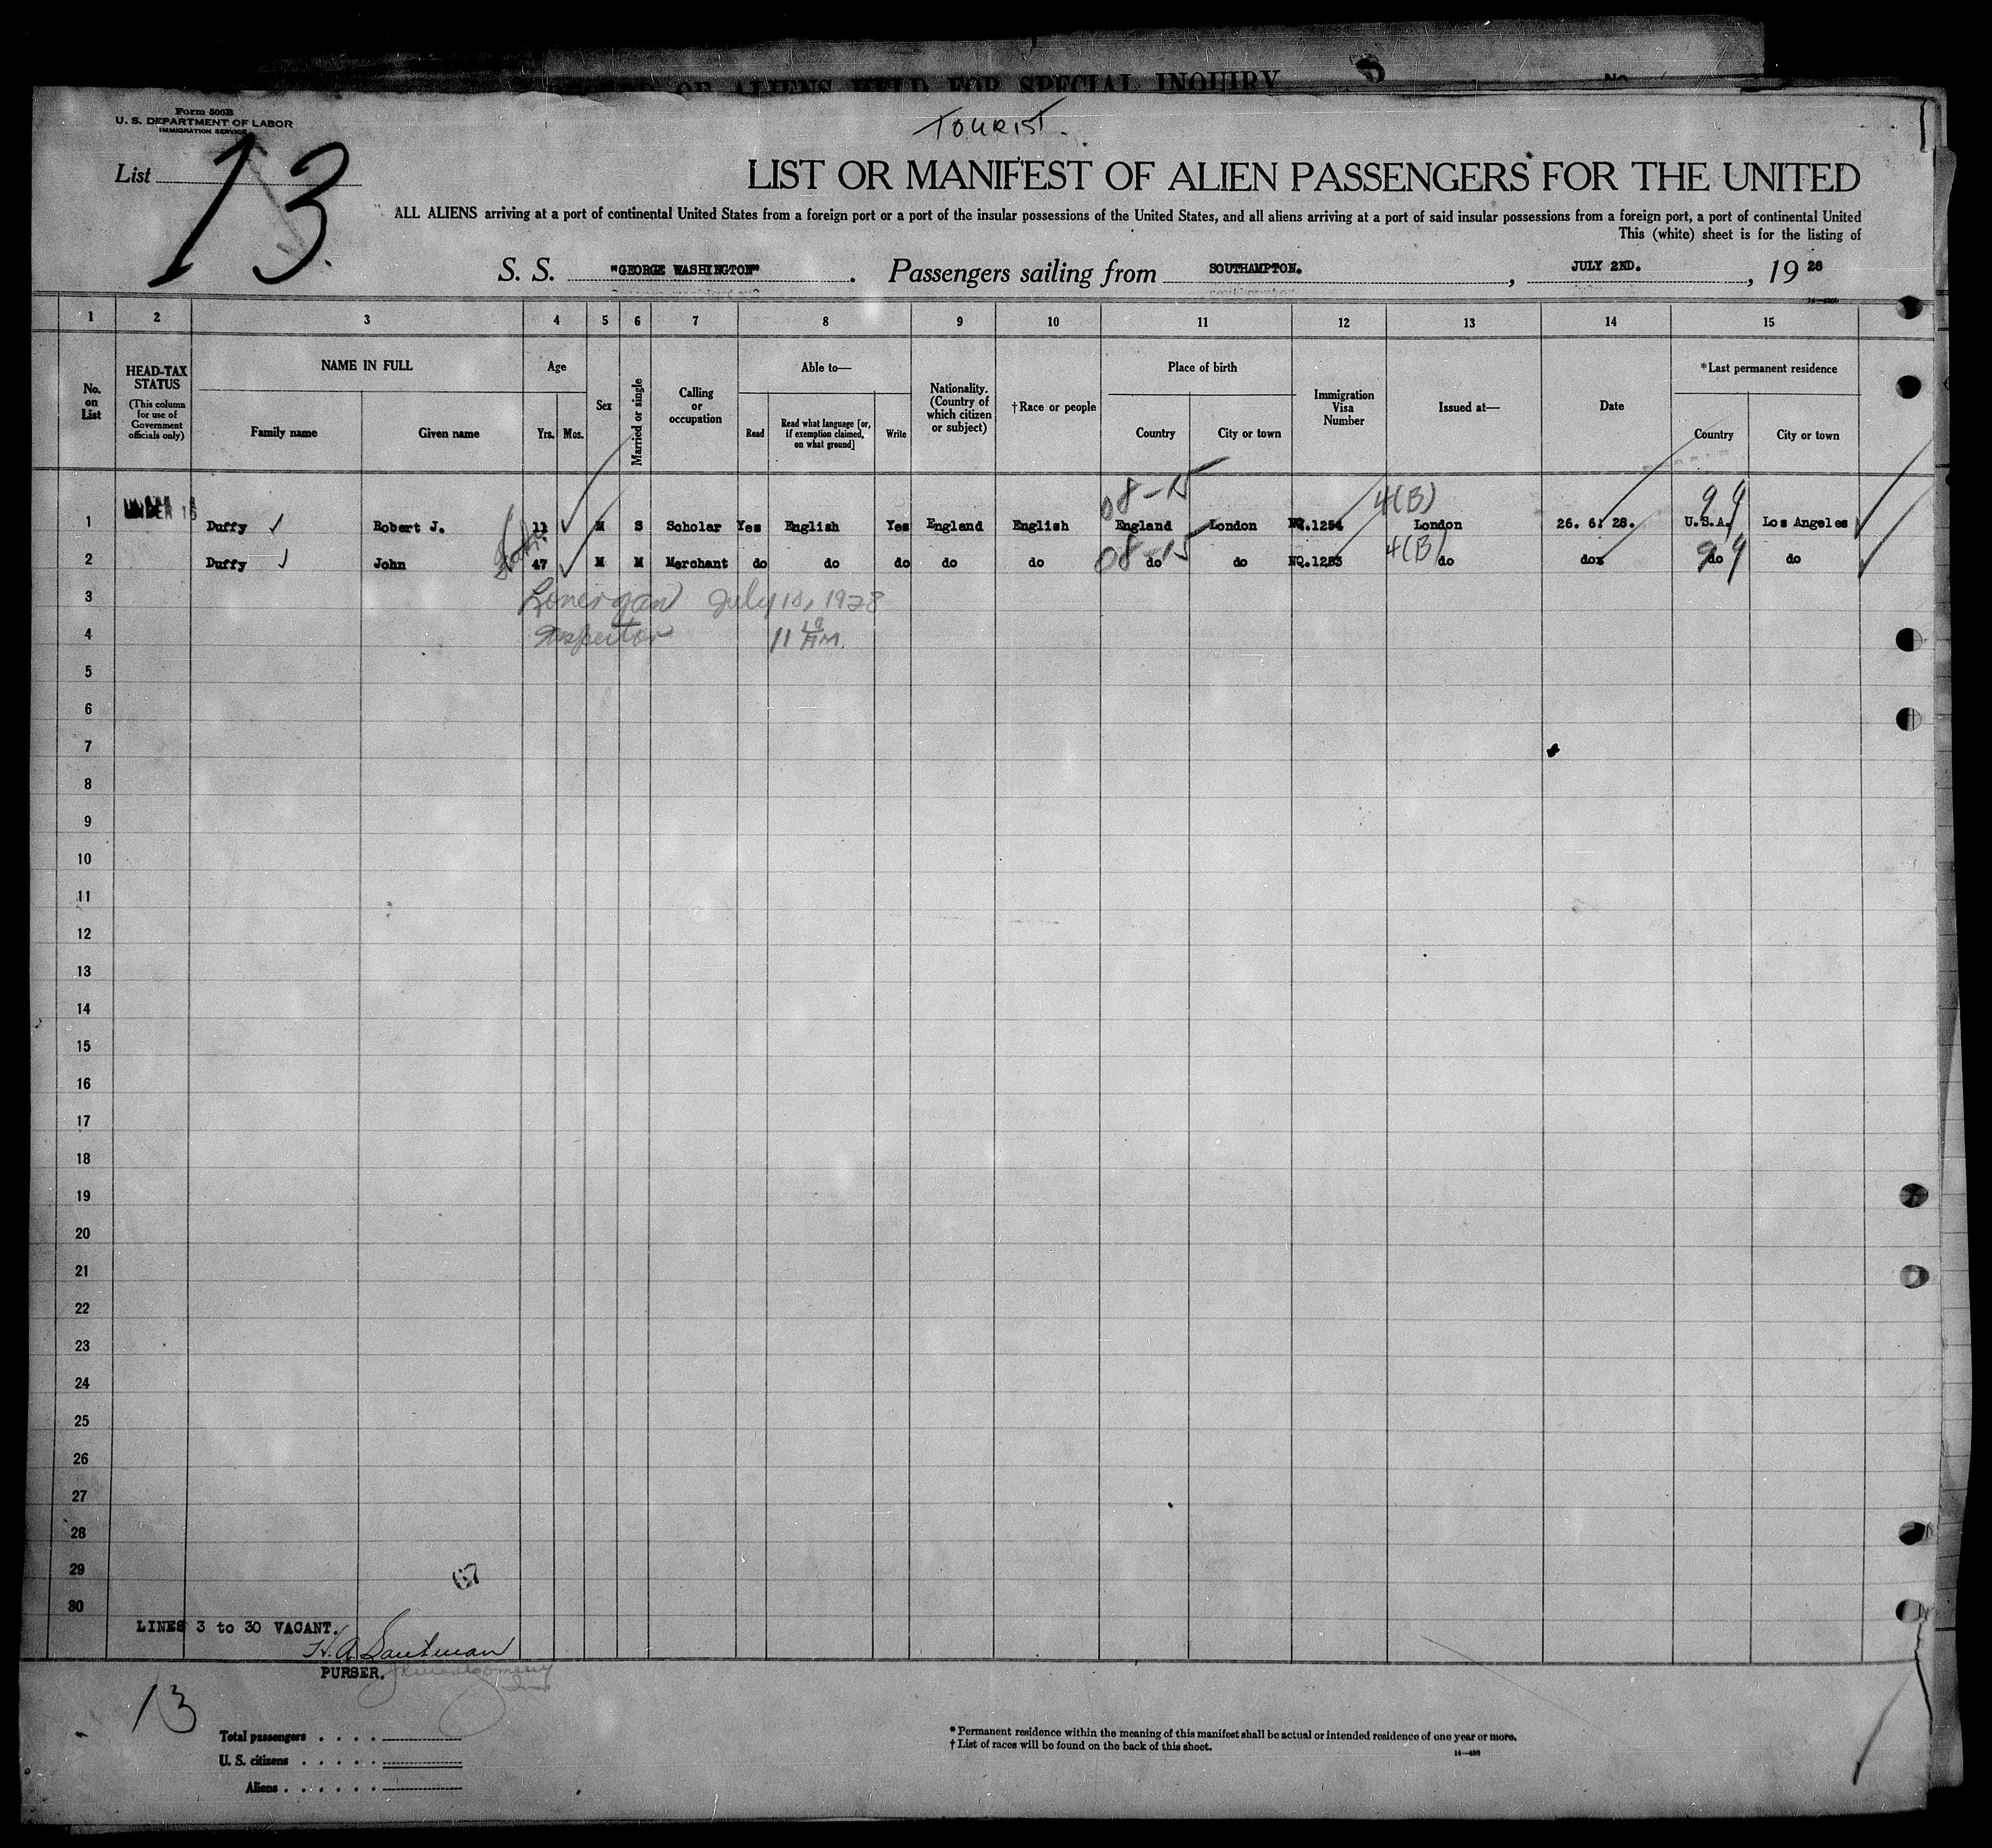 OF ALIENS HELD FOR SPECIAL INQUIRY
No
Form 500B
U. S. DEPARTMENT OF LABOR
IMMIGRATION SERVICE
TOURIST.
List 13.
LIST OR MANIFEST OF ALIEN PASSENGERS FOR THE UNITED
ALL ALIENS arriving at a port of continental United States from a foreign port or a port of the insular possessions of the United States, and all aliens arriving at a port of said insular possessions from a foreign port, a port of continental United
This (white) sheet is for the listing of
S. S. "GEORGE WASHINGTON". Passengers sailing from SOUTHAMPTON., JULY 2ND., 19 28
1 2 3 4 5 6 7 8 9 10 11 12 13 14 15
No. on List
HEAD-TAX STATUS
(This column for use of Government officials only)
NAME IN FULL
Family name Given name
Age
Yrs. Mos.
Sex
Married or single
Calling or occupation
Able to—
Read
Read what language [or, if exemption claimed, on what ground]
Write
Nationality. (Country of which citizen or subject)
†Race or people
Place of birth
Country City or town
Immigration Visa Number
Issued at—
Date
*Last permanent residence
Country City or town
08-15 4(B) 99
1 UNDER 16 Duffy Robert J. 11 M S Scholar Yes English Yes England English England London NQ.1254 London 26. 6. 28. U.S.A. Los Angeles
08-15 4(B) 99
2 Duffy John 47 M M Merchant do do do do do do do NQ.1253 do do do do
3 Lonergan July 10, 1928
4 Inspector 11 AM.
5
6
7
8
9
10
11
12
13
14
15
16
17
18
19
20
21
22
23
24
25
26
27
28
29
30
67
LINES 3 to 30 VACANT.
PURSER.
13
Total passengers
U. S. citizens
Aliens
* Permanent residence within the meaning of this manifest shall be actual or intended residence of one year or more.
† List of races will be found on the back of this sheet.